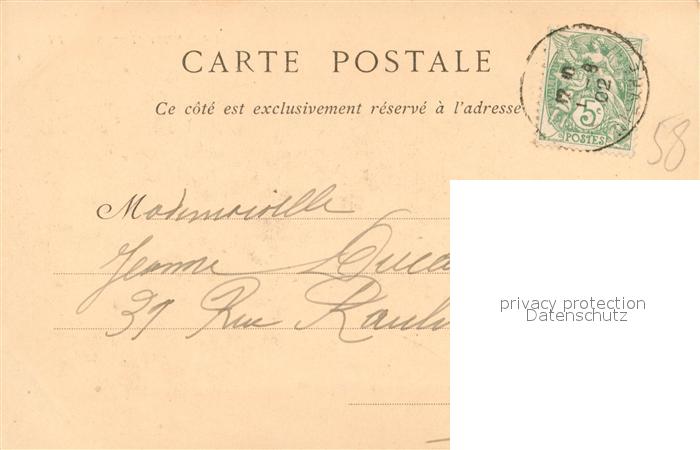 CARTE POSTALE
Ce côté est exclusivement réservé à l'adresse
5c
POSTES
02
58
Mademoiselle
Jeanne
privacy protection
Datenschutz
37 Rue